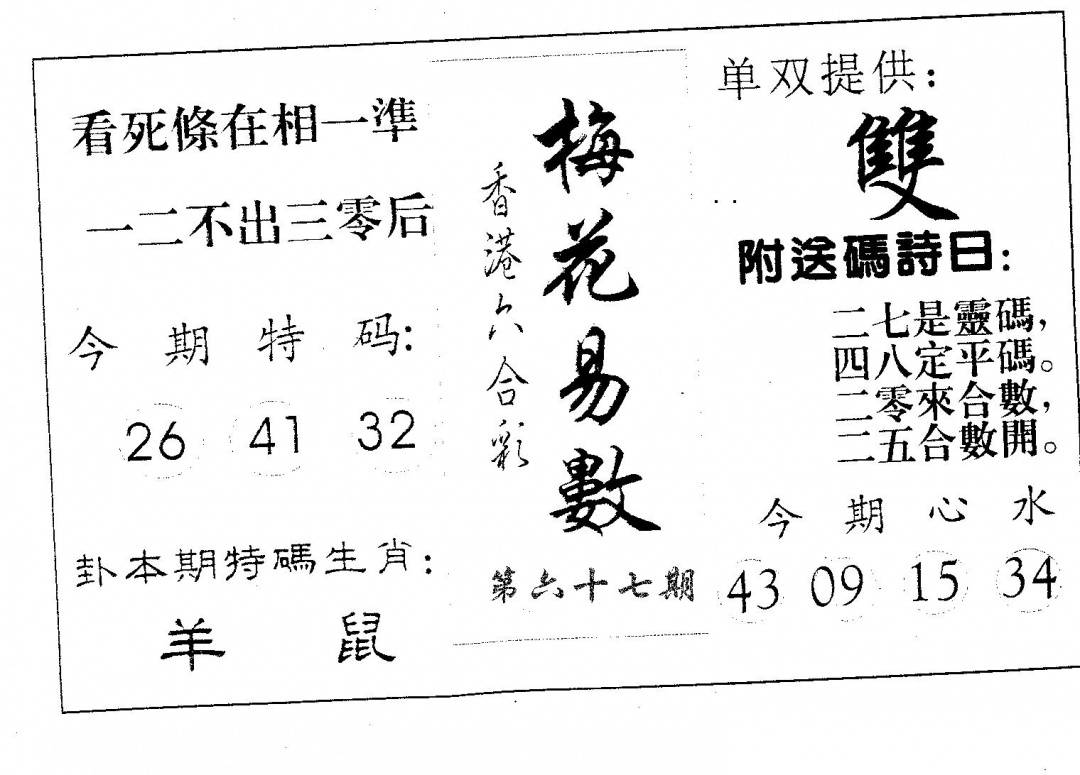 看死條在相一準
一二不出三零后
今期特码:
26 41 32
卦本期特碼生肖:
羊 鼠
香港六合彩
梅花易數
第六十七期
单双提供:
雙
附送碼詩曰:
二七是靈碼,
四八定平碼。
二零來合數,
二五合數開。
今期心水
43 09 15 34